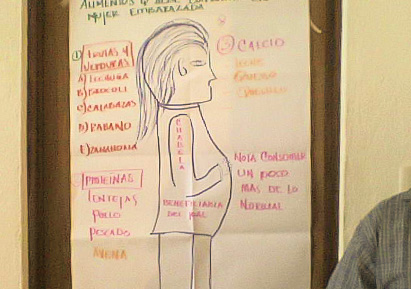 ALIMENTOS Q DEBE
MUJER EMBARAZADA
①
VERDURAS
A) LECHUGA
B) BROCOLI
C) CALABAZAS
D) RABANO
E) ZANAHORIA
PROTEINAS
LENTEJAS
POLLO
PESCADO
AVENA
CHABELA
BENEFICIARIA
DEL
③ CALCIO
LECHE
NOTA CONSUMIR
UN POCO
MAS DE LO
NORMAL